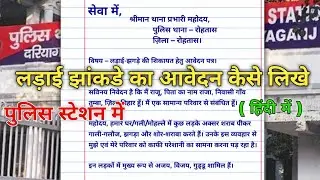 सेवा में,
श्रीमान थाना प्रभारी महोदय,
पुलिस थाना - रोहतास
ज़िला – रोहतास।
विषय – लड़ाई-झगड़े की शिकायत हेतु आवेदन पत्र।
लड़ाई झांकडे का आवेदन कैसे लिखे
पुलिस स्टेशन में
( हिंदी में )
सविनय निवेदन है कि मैं राजू, पिता का नाम राजा, निवासी गाँव
तुम्बा, ज़िला बिहार हूँ। मैं एक सामान्य परिवार से संबंधित हूँ।
महोदय, हमारे घर/गली/मोहल्ले में कुछ लड़के अक्सर शराब पीकर
गाली-गलौज, झगड़ा और शोर-शराबा करते हैं। उनके इस व्यवहार से
मुझे एवं मेरे परिवार को काफी परेशानी का सामना करना पड़ रहा है।
इन लड़कों में मुख्य रूप से अजय, विजय, गुड्डू शामिल हैं।
पुलिस थाना
दरियाग
STA
GANJ